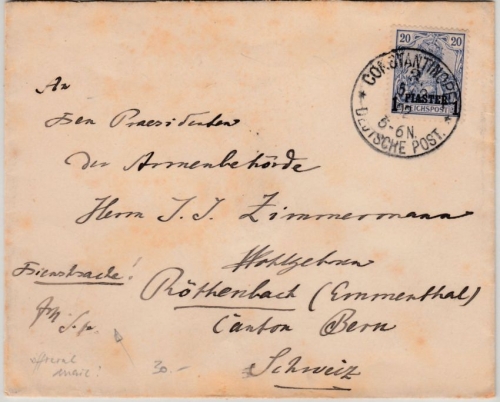 20 20
1 PIASTER 1
REICHSPOST
CONSTANTINOPEL
5-6N.
DEUTSCHE POST.
An
Den Praesidenten
der Armenbehörde
Herrn J. J. Zimmermann
Wohlgeboren
Dienstsache!
Röthenbach (Emmenthal)
Canton Bern
Schweiz
official
mail!
30.-